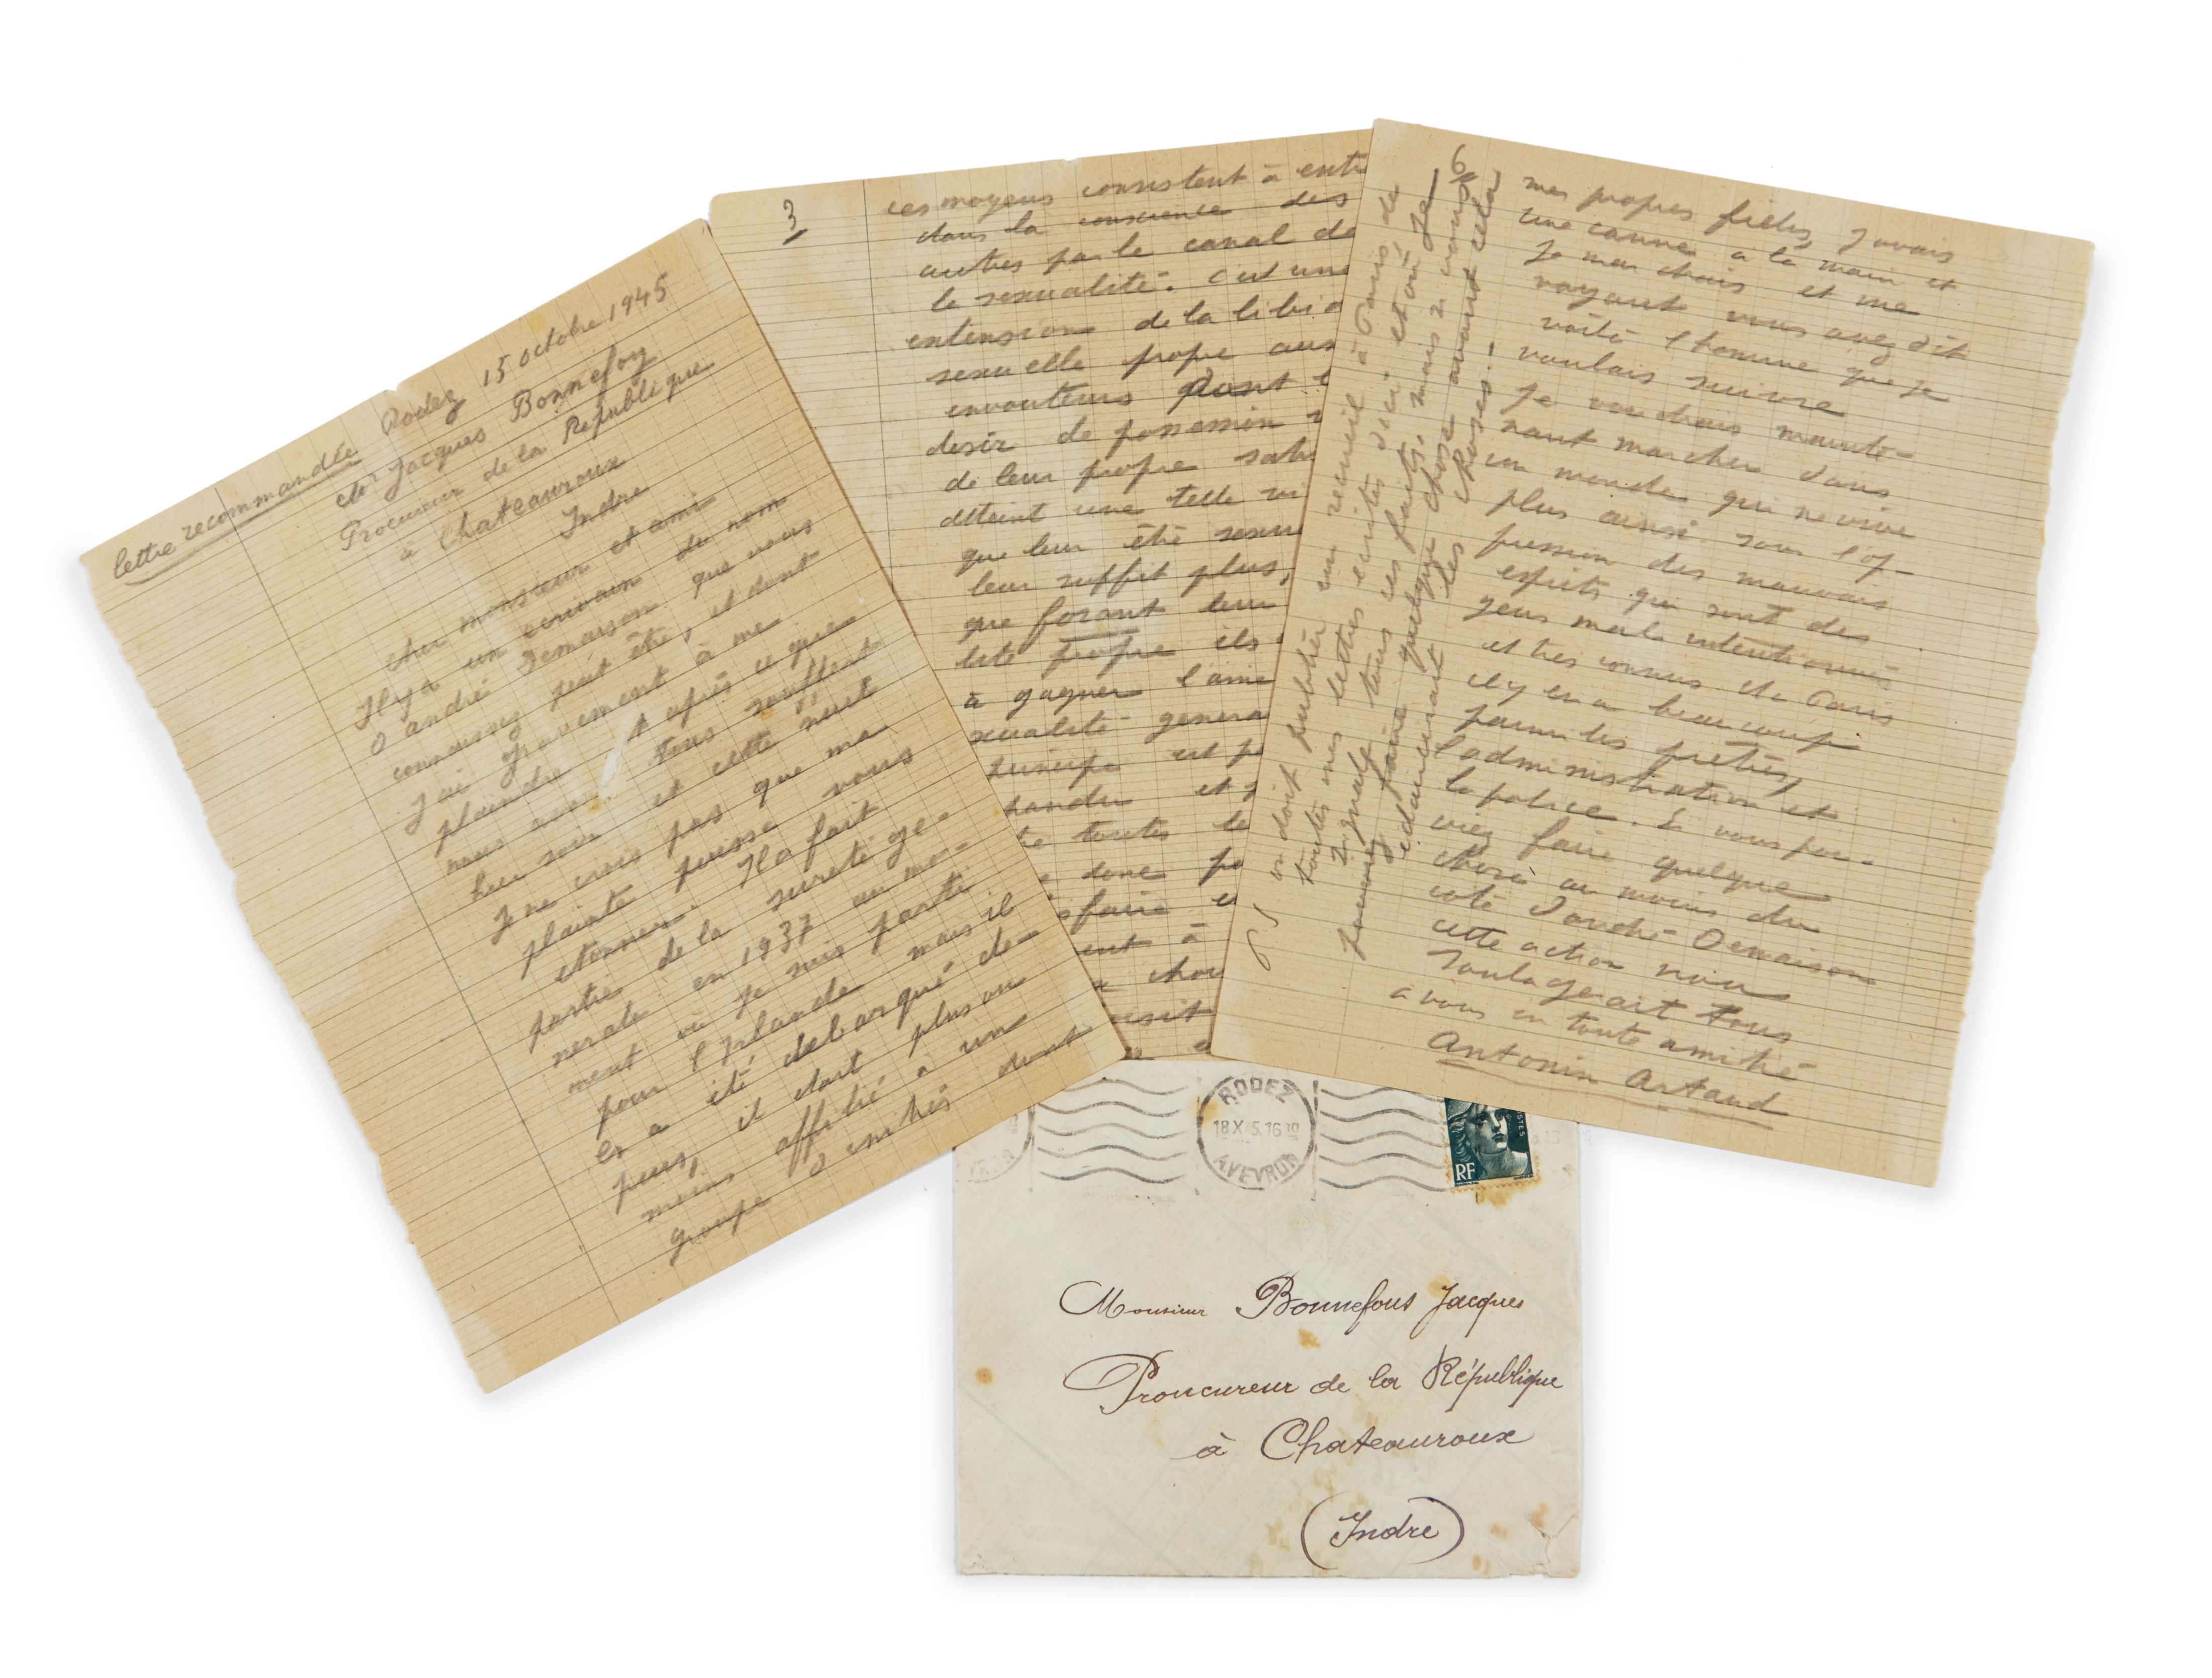 lettre recommandée Rodez 15 octobre 1945
Mr Jacques Bonnefoy
Procureur de la République
à Chateauroux
Indre
cher monsieur et ami
Il y a un écrivain du nom
d andré Demaison que vous
connaissez peut être, et dont
j'ai gravement à me
plaindre après ce que
nous tous souffert
hier soir et cette nuit
Je ne crois pas que ma
plainte puisse vous
étonner. Il a fait
partie de la sureté gé-
nérale en 1937 au mo-
ment où je suis parti
pour l Irlande mais il
en a été debarqué de-
puis, il était plus ou
moins affilié a un
groupe d initiés dont
3
ces moyens consistent à entr
dans la conscience des
autres par le canal de
la sexualité. C'est une
extension de la libid
sexuelle propre aux
envouteurs dont l
desir de possession
de leur propre
atteint une telle
que leur été sexu
leur suffit plus,
que forant leur
lité propre ils
à gagner l'ame
xualité genera
principe est p
pandu et
toutes le
donc p
sfaire
ent à
chos
6
mes propres fictes, j avais
une canne à la main et
Je marchais et me
voyant vous avez dit
voilà l homme que je
voulais suivre
Je voudrais mainte-
nant marcher dans
un monde qui ne vive
plus ainsi sous l op-
pression des mauvais
esprits qui sont des
gens mal intentionnés
et très connus de Paris
il y en a beaucoup
parmi les prêtres,
l administration et
la police. Si vous pou-
viez faire quelque
chose au moins du
coté d andré Demaison
cette action nous
soulagerait tous
a vous en toute amitié
Antonin Artaud
P S on doit publier un recueil à Paris de
toutes mes lettres écrites d'ici et où je
signale tous ces faits, mais si vous
pouviez faire quelque chose avant cela
éclairciraient les choses.
RODEZ
18 X 45.16 30
AVEYRON
POSTES
RF
Monsieur Bonnefous Jacques
Proucureur de la République
à Chateauroux
(Indre)